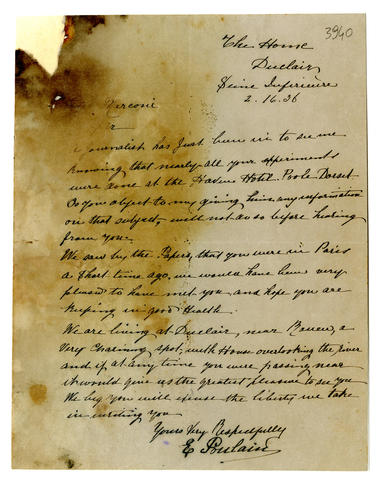 3940
The Home
Duclair
Seine Inferieure
2. 16. 36
Marconi
ournalist has just been in to see me
knowing that nearly all your experiments
were done at the Haven Hotel Poole Dorset
Do you object to my giving him any information
on that subject, will not do so before hearing
from you.
We saw by the Papers, that you were in Paris
a short time ago, we would have been very
pleased to have met you and hope you are
keeping in good Health.
We are living at Duclair, near Rouen, a
very charming spot, with House overlooking the river
and if at any time you were passing near
it would give us the greatest pleasure to see you
We beg you will excuse the liberty we take
in writing you
Yours Very Respectfully
E Poulain